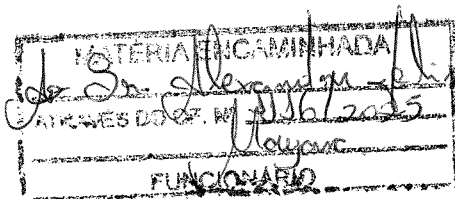 MATÉRIA ENCAMINHADA
do Sr. Alexandre
ATRAVÉS DO OF. Nº 1116/2025
FUNCIONÁRIO